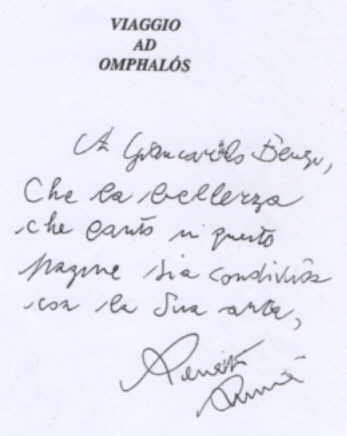 VIAGGIO
AD
OMPHALÓS
A Giancarlo
Che la bellezza
che canto in queste
pagine sia condivisa
con la Sua arte,